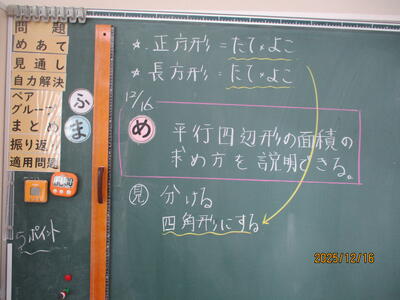 問題
めあて
見通し
自力解決
ペア
グループ
まとめ
振り返り
適用問題
ふ
ま
5ポイント
☆正方形=たて×よこ
☆長方形=たて×よこ
12/16
め 平行四辺形の面積の
求め方を説明できる。
見 分ける
四角形にする
2025/12/16